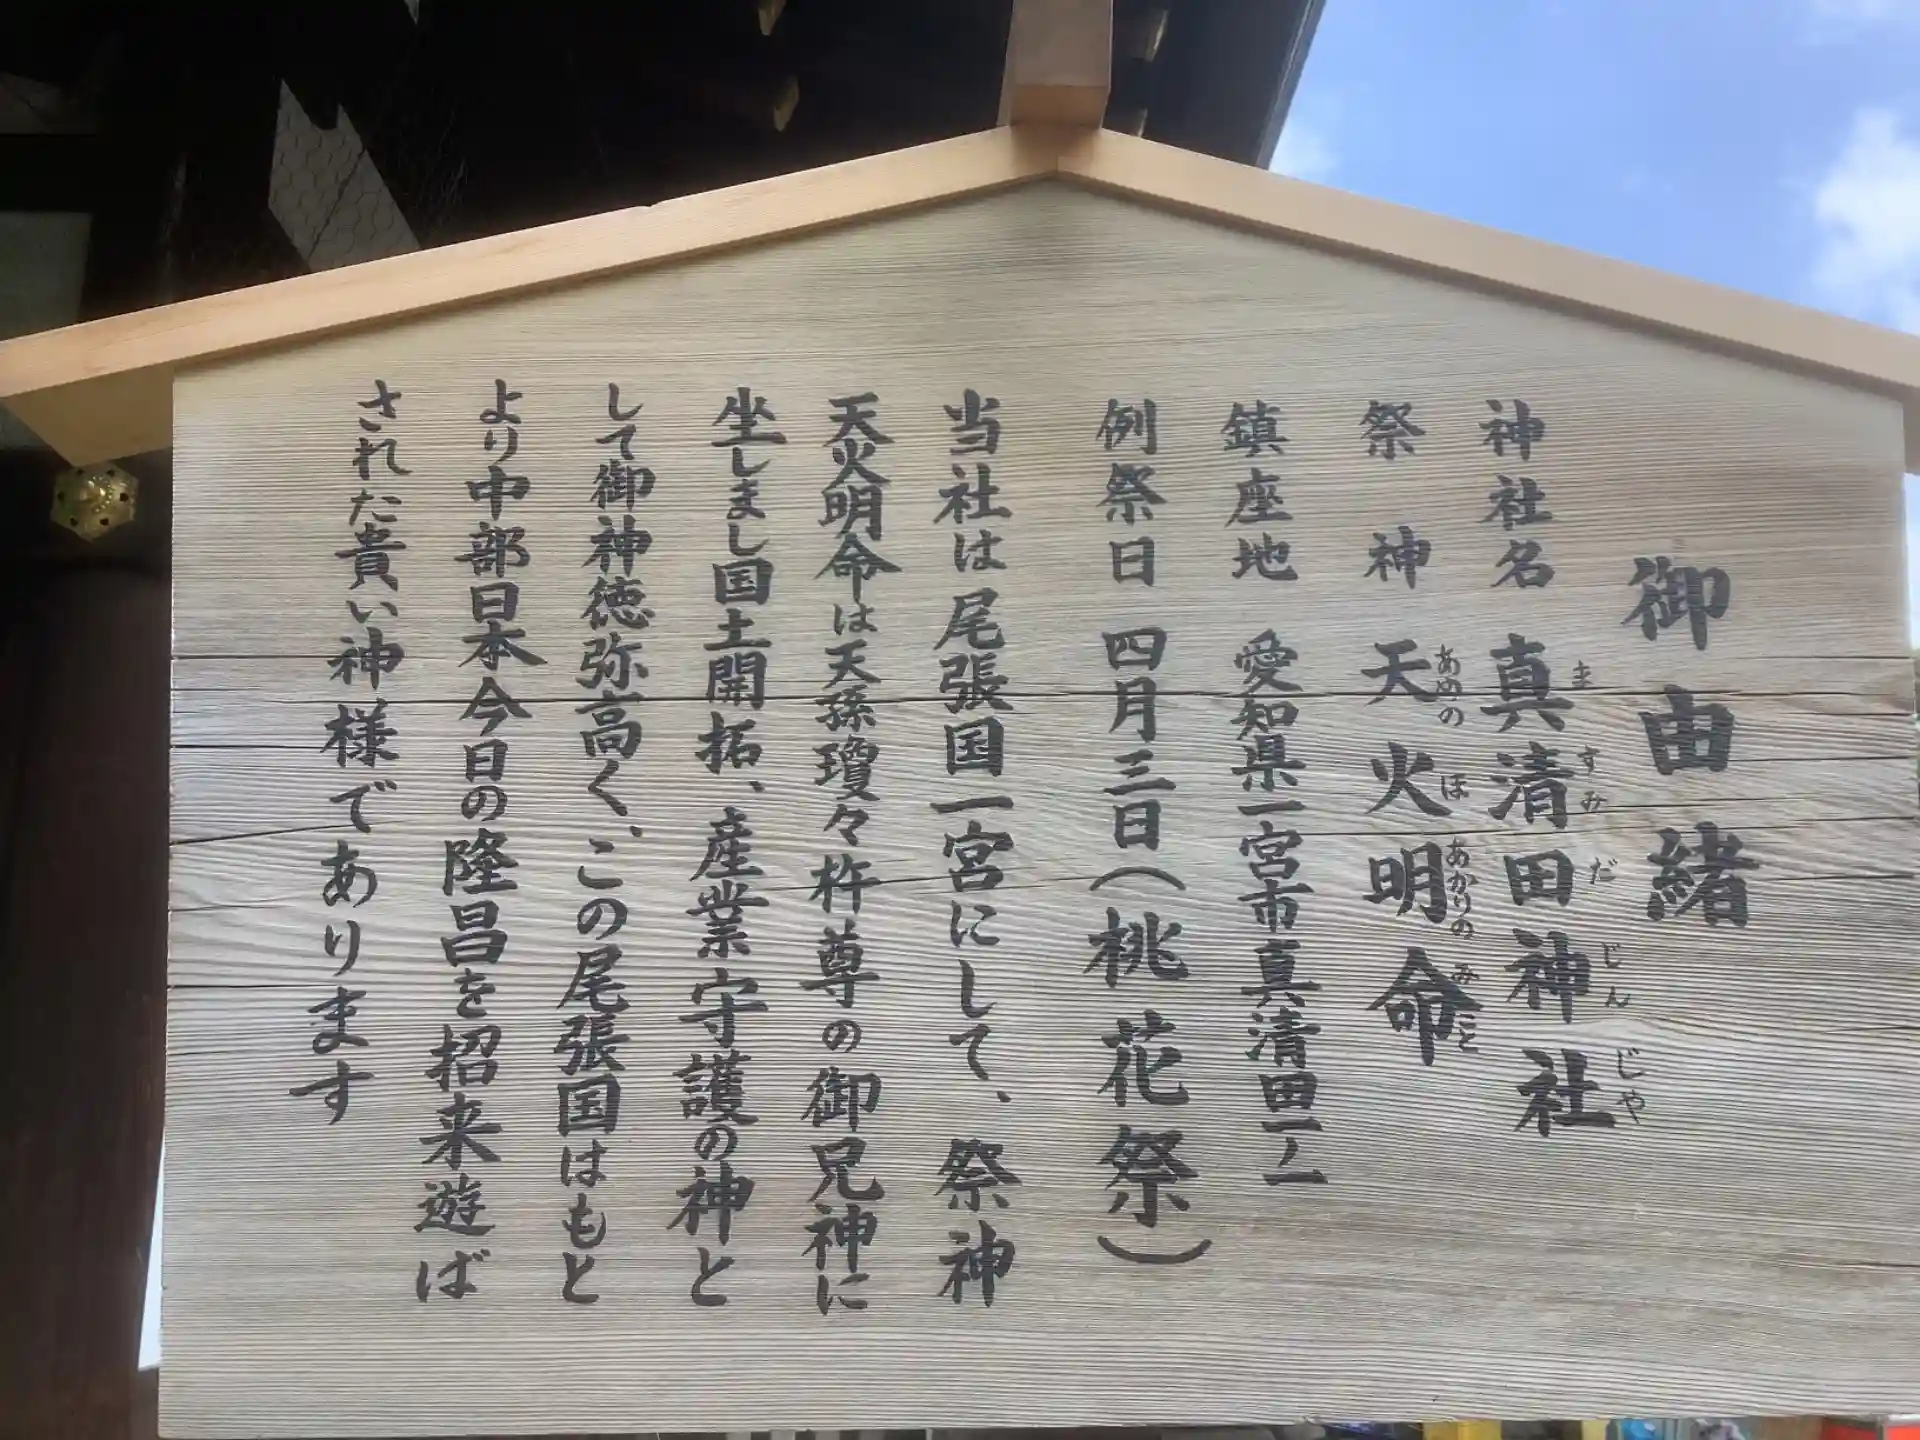 御由緒
神社名 真清田神社
ま すみ だ じん じや
祭神 天火明命
あめの ほ あかりの みこと
鎮座地 愛知県一宮市真清田一ノ一
例祭日 四月三日(桃花祭)
当社は尾張国一宮にして、祭神
天火明命は天孫瓊々杵尊の御兄神に
坐しまし国土開拓、産業守護の神と
して御神徳弥高く、この尾張国はもと
より中部日本今日の隆昌を招来遊ば
された貴い神様であります